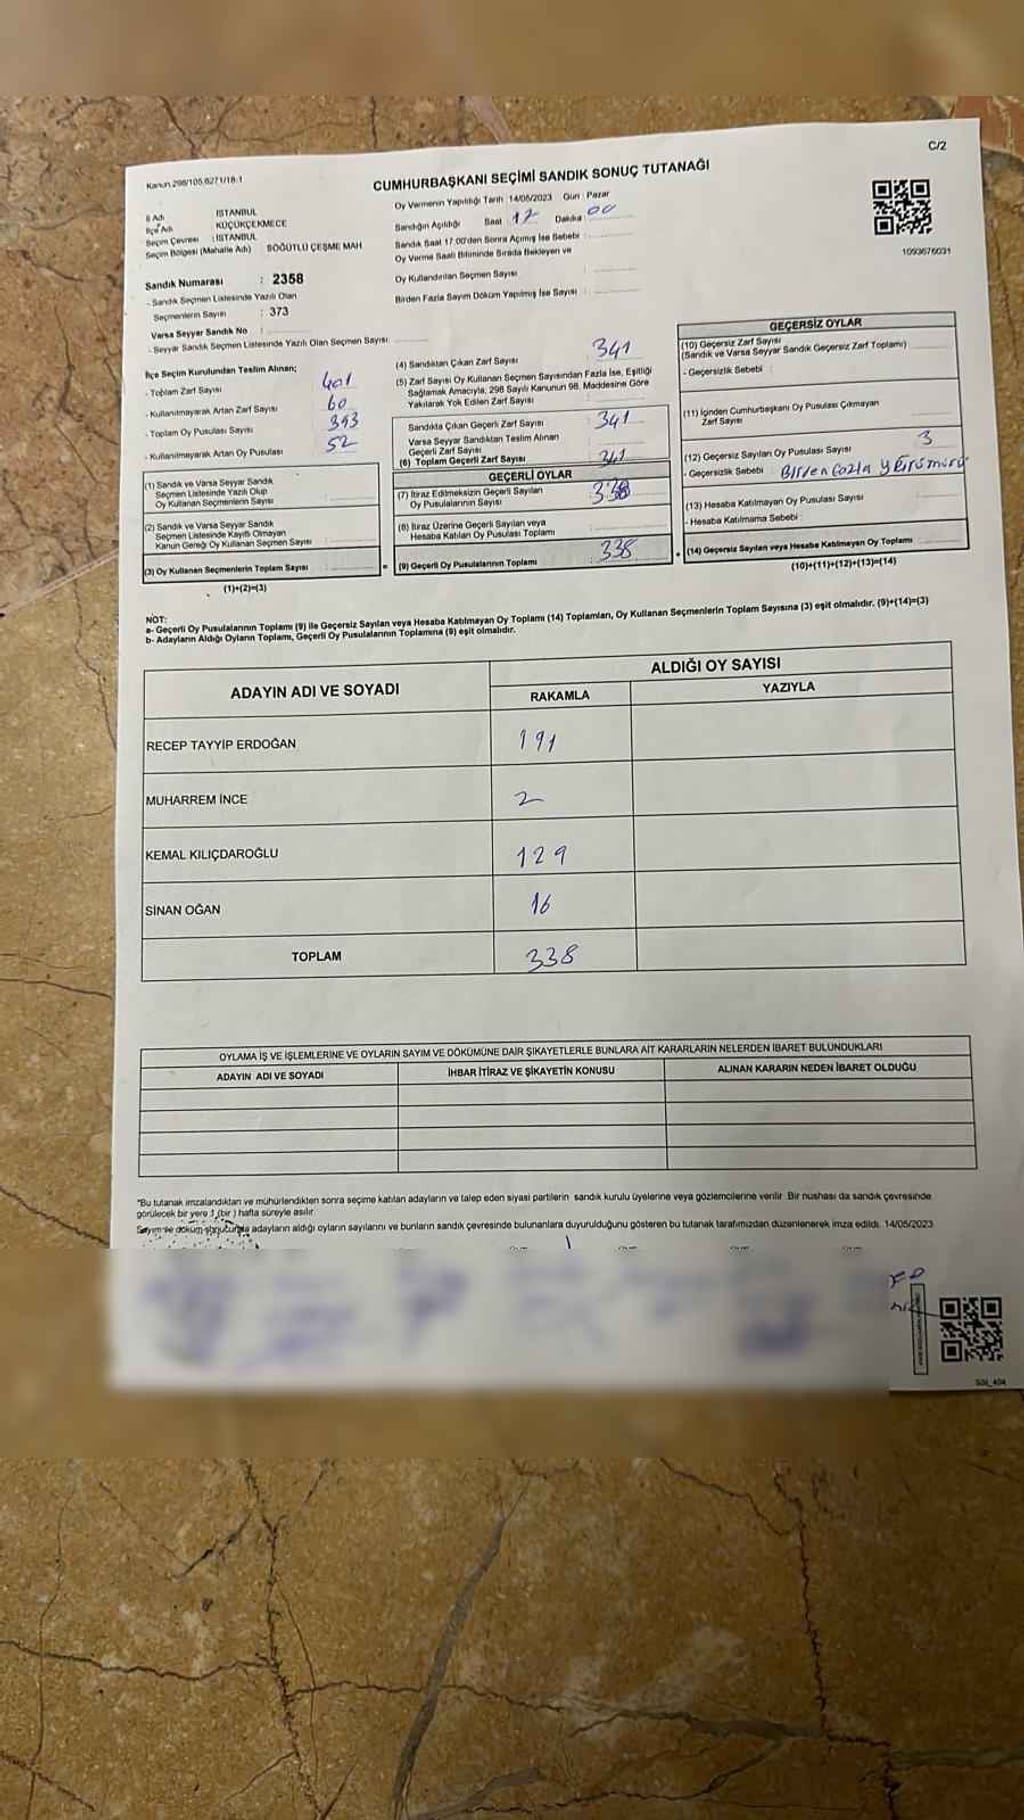 C/2
Kanun 298/105,6271/18-1
CUMHURBAŞKANI SEÇİMİ SANDIK SONUÇ TUTANAĞI
1093676031
İl Adı : İSTANBUL
İlçe Adı : KÜÇÜKÇEKMECE
Seçim Çevresi : İSTANBUL
Seçim Bölgesi (Mahalle Adı) : SÖĞÜTLÜ ÇEŞME MAH
Sandık Numarası : 2358
- Sandık Seçmen Listesinde Yazılı Olan
Seçmenlerin Sayısı : 373
Varsa Seyyar Sandık No :
- Seyyar Sandık Seçmen Listesinde Yazılı Olan Seçmen Sayısı :
Oy Vermenin Yapıldığı Tarih : 14/05/2023 Gün : Pazar
Sandığın Açıldığı Saat : 17 Dakika : 00
Sandık Saat 17:00'den Sonra Açılmış İse Sebebi :
Oy Verme Saati Bitiminde Sırada Bekleyen ve
Oy Kullandırılan Seçmen Sayısı :
Birden Fazla Sayım Döküm Yapılmış İse Sayısı :
İlçe Seçim Kurulundan Teslim Alınan;
- Toplam Zarf Sayısı : 401
- Kullanılmayarak Artan Zarf Sayısı : 60
- Toplam Oy Pusulası Sayısı : 393
- Kullanılmayarak Artan Oy Pusulası : 52
(1) Sandık ve Varsa Seyyar Sandık
Seçmen Listesinde Yazılı Olup
Oy Kullanan Seçmenlerin Sayısı :
(2) Sandık ve Varsa Seyyar Sandık
Seçmen Listesinde Kayıtlı Olmayan
Kanun Gereği Oy Kullanan Seçmen Sayısı :
(3) Oy Kullanan Seçmenlerin Toplam Sayısı :
(1)+(2)=(3)
(4) Sandıktan Çıkan Zarf Sayısı : 341
(5) Zarf Sayısı Oy Kullanan Seçmen Sayısından Fazla İse, Eşitliği
Sağlamak Amacıyla, 298 Sayılı Kanunun 98. Maddesine Göre
Yakılarak Yok Edilen Zarf Sayısı :
Sandıkta Çıkan Geçerli Zarf Sayısı : 341
Varsa Seyyar Sandıktan Teslim Alınan
Geçerli Zarf Sayısı :
(6) Toplam Geçerli Zarf Sayısı : 341
GEÇERLİ OYLAR
(7) İtiraz Edilmeksizin Geçerli Sayılan
Oy Pusulalarının Sayısı : 338
(8) İtiraz Üzerine Geçerli Sayılan veya
Hesaba Katılan Oy Pusulası Toplamı :
(9) Geçerli Oy Pusulalarının Toplamı : 338
GEÇERSİZ OYLAR
(10) Geçersiz Zarf Sayısı
(Sandık ve Varsa Seyyar Sandık Geçersiz Zarf Toplamı) :
- Geçersizlik Sebebi :
(11) İçinden Cumhurbaşkanı Oy Pusulası Çıkmayan
Zarf Sayısı :
(12) Geçersiz Sayılan Oy Pusulası Sayısı : 3
- Geçersizlik Sebebi : Birden fazla
(13) Hesaba Katılmayan Oy Pusulası Sayısı :
- Hesaba Katılmama Sebebi :
(14) Geçersiz Sayılan veya Hesaba Katılmayan Oy Toplamı :
(10)+(11)+(12)+(13)=(14)
NOT:
a- Geçerli Oy Pusulalarının Toplamı (9) ile Geçersiz Sayılan veya Hesaba Katılmayan Oy Toplamı (14) Toplamları, Oy Kullanan Seçmenlerin Toplam Sayısına (3) eşit olmalıdır. (9)+(14)=(3)
b- Adayların Aldığı Oyların Toplamı, Geçerli Oy Pusulalarının Toplamına (9) eşit olmalıdır.
ADAYIN ADI VE SOYADI ALDIĞI OY SAYISI
RAKAMLA YAZIYLA
RECEP TAYYİP ERDOĞAN 191
MUHARREM İNCE 2
KEMAL KILIÇDAROĞLU 129
SİNAN OĞAN 16
TOPLAM 338
OYLAMA İŞ VE İŞLEMLERİNE VE OYLARIN SAYIM VE DÖKÜMÜNE DAİR ŞİKAYETLERLE BUNLARA AİT KARARLARIN NELERDEN İBARET BULUNDUKLARI
ADAYIN ADI VE SOYADI İHBAR İTİRAZ VE ŞİKAYETİN KONUSU ALINAN KARARIN NEDEN İBARET OLDUĞU
*Bu tutanak imzalandıktan ve mühürlendikten sonra seçime katılan adayların ve talep eden siyasi partilerin sandık kurulu üyelerine veya gözlemcilerine verilir. Bir nushası da sandık çevresinde
görülecek bir yere 1 (bir ) hafta süreyle asılır.
Sayım ve döküm sonucunda adayların aldığı oyların sayılarını ve bunların sandık çevresinde bulunanlara duyurulduğunu gösteren bu tutanak tarafımızdan düzenlenerek imza edildi. 14/05/2023